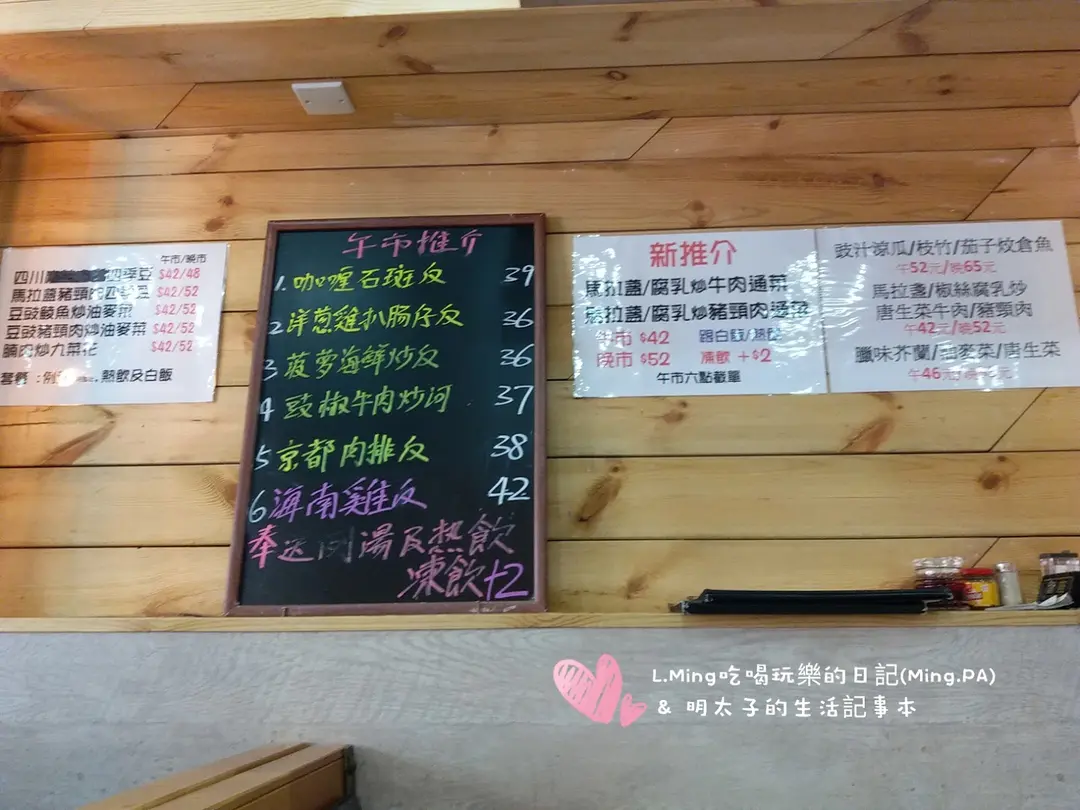 午市/晚市
四川 四季豆 $42/48
馬拉盞豬頸肉四季豆 $42/52
豆豉鯪魚炒油麥菜 $42/52
豆豉豬頸肉炒油麥菜 $42/52
腩肉炒九菜花 $42/52
熱飲及白飯
午市推介
1. 咖喱石斑反 39
2 洋葱雞扒腸仔反 36
3 菠萝海鮮炒反 36
4 豉椒牛肉炒河 37
5 京都肉排反 38
6 海南雞反 42
奉送 湯及热飲
凍飲+2
新推介
馬拉盞/腐乳炒牛肉通菜
馬拉盞/腐乳炒豬頸肉通菜
午市 $42 跟白飯/熱飲
晚市 $52 凍飲 +$2
午市六點截單
豉汁涼瓜/枝竹/茄子炆倉魚
午52元/晚65元
馬拉盞/椒絲腐乳炒
唐生菜牛肉/豬頸肉
午42元/晚52元
臘味芥蘭/油麥菜/唐生菜
午46元
L.Ming吃喝玩樂的日記(Ming.PA)
& 明太子的生活記事本